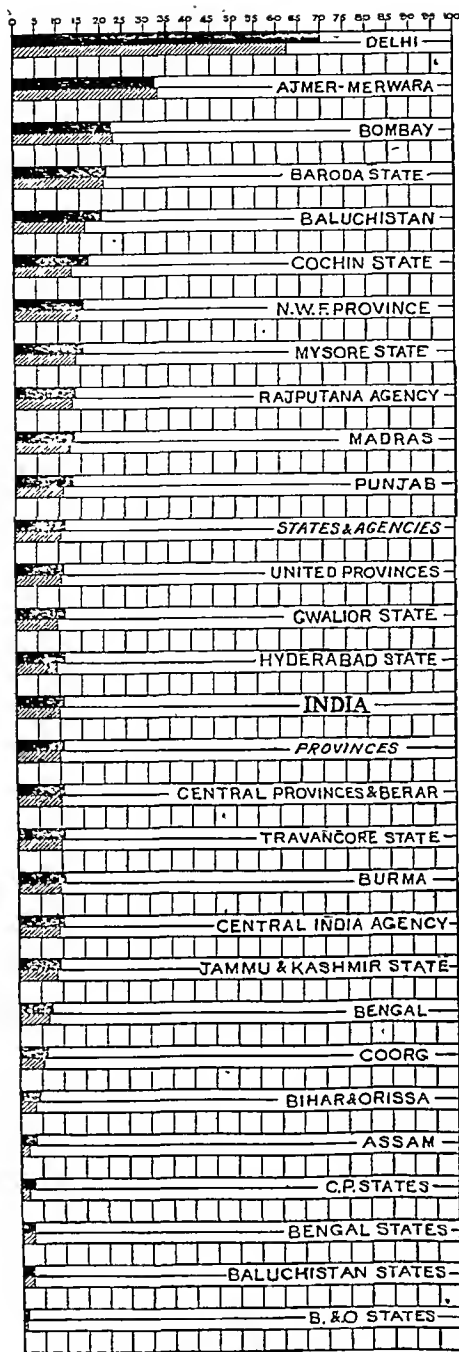 0 5 10 15 20 25 30 35 40 45 50 55 60 65 70 75 80 85 90 95 100
DELHI
AJMER-MERWARA
BOMBAY
BARODA STATE
BALUCHISTAN
COCHIN STATE
N.W.F. PROVINCE
MYSORE STATE
RAJPUTANA AGENCY
MADRAS
PUNJAB
STATES & AGENCIES
UNITED PROVINCES
GWALIOR STATE
HYDERABAD STATE
INDIA
PROVINCES
CENTRAL PROVINCES & BERAR
TRAVANCORE STATE
BURMA
CENTRAL INDIA AGENCY
JAMMU & KASHMIR STATE
BENGAL
COORG
BIHAR & ORISSA
ASSAM
C.P. STATES
BENGAL STATES
BALUCHISTAN STATES
B. & O STATES